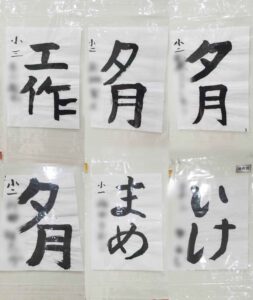 小三
工作
小二
夕月
小二
夕月
小二
夕月
小一
まめ
いけ